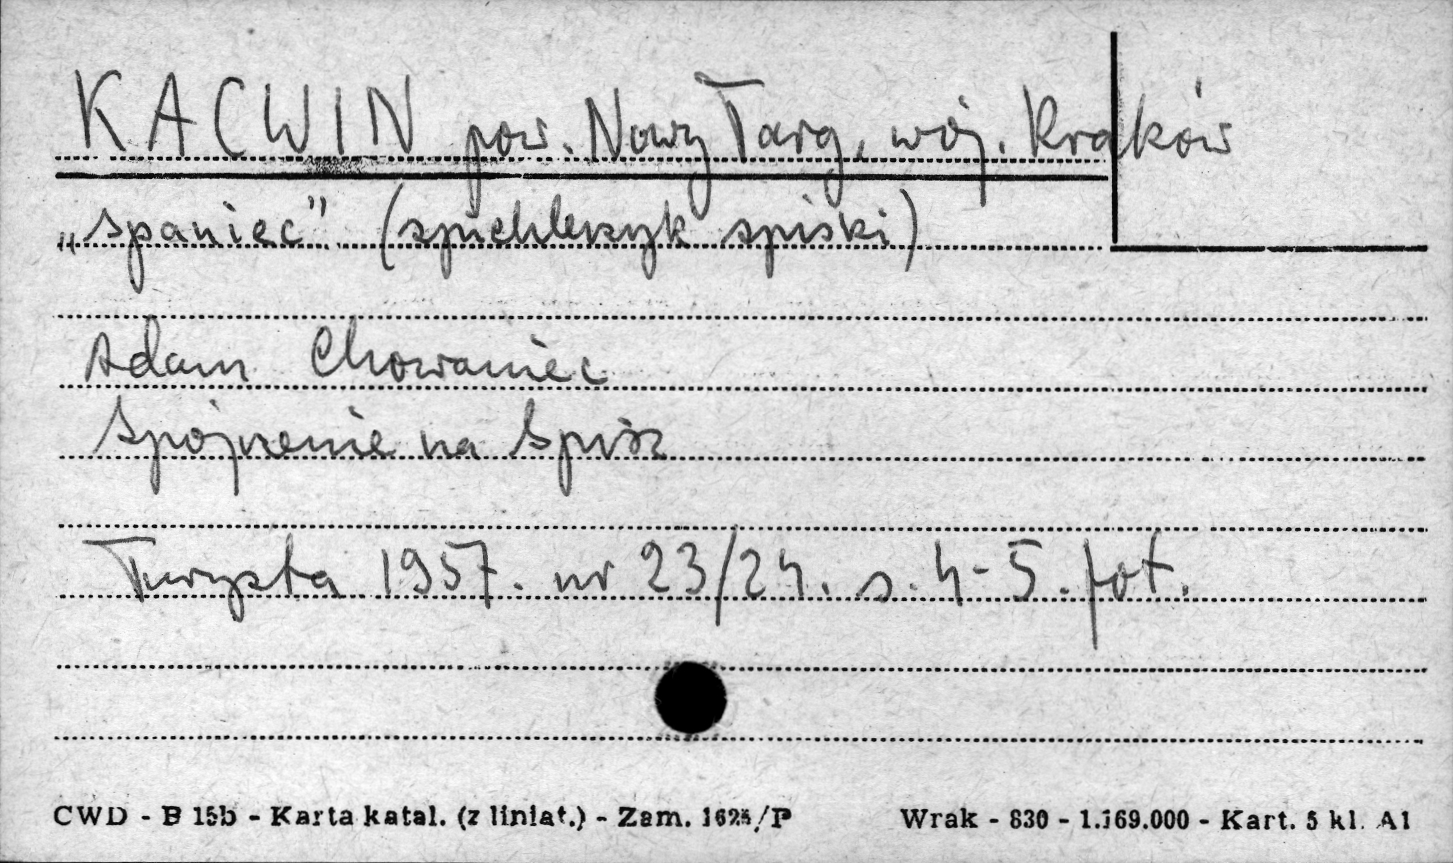 KACWIN pow. Nowy Targ, woj. Kraków
„spaniec" (spichlerzyk spiski)
Adam Chowaniec
Spojrzenie na Spisz
Turysta 1957. nr 23/24. s. 4-5. fot.
CWD - B 15b - Karta katal. (z liniat.) - Zam. 1624/P Wrak - 830 - 1.169.000 - Kart. 5 kl. A1